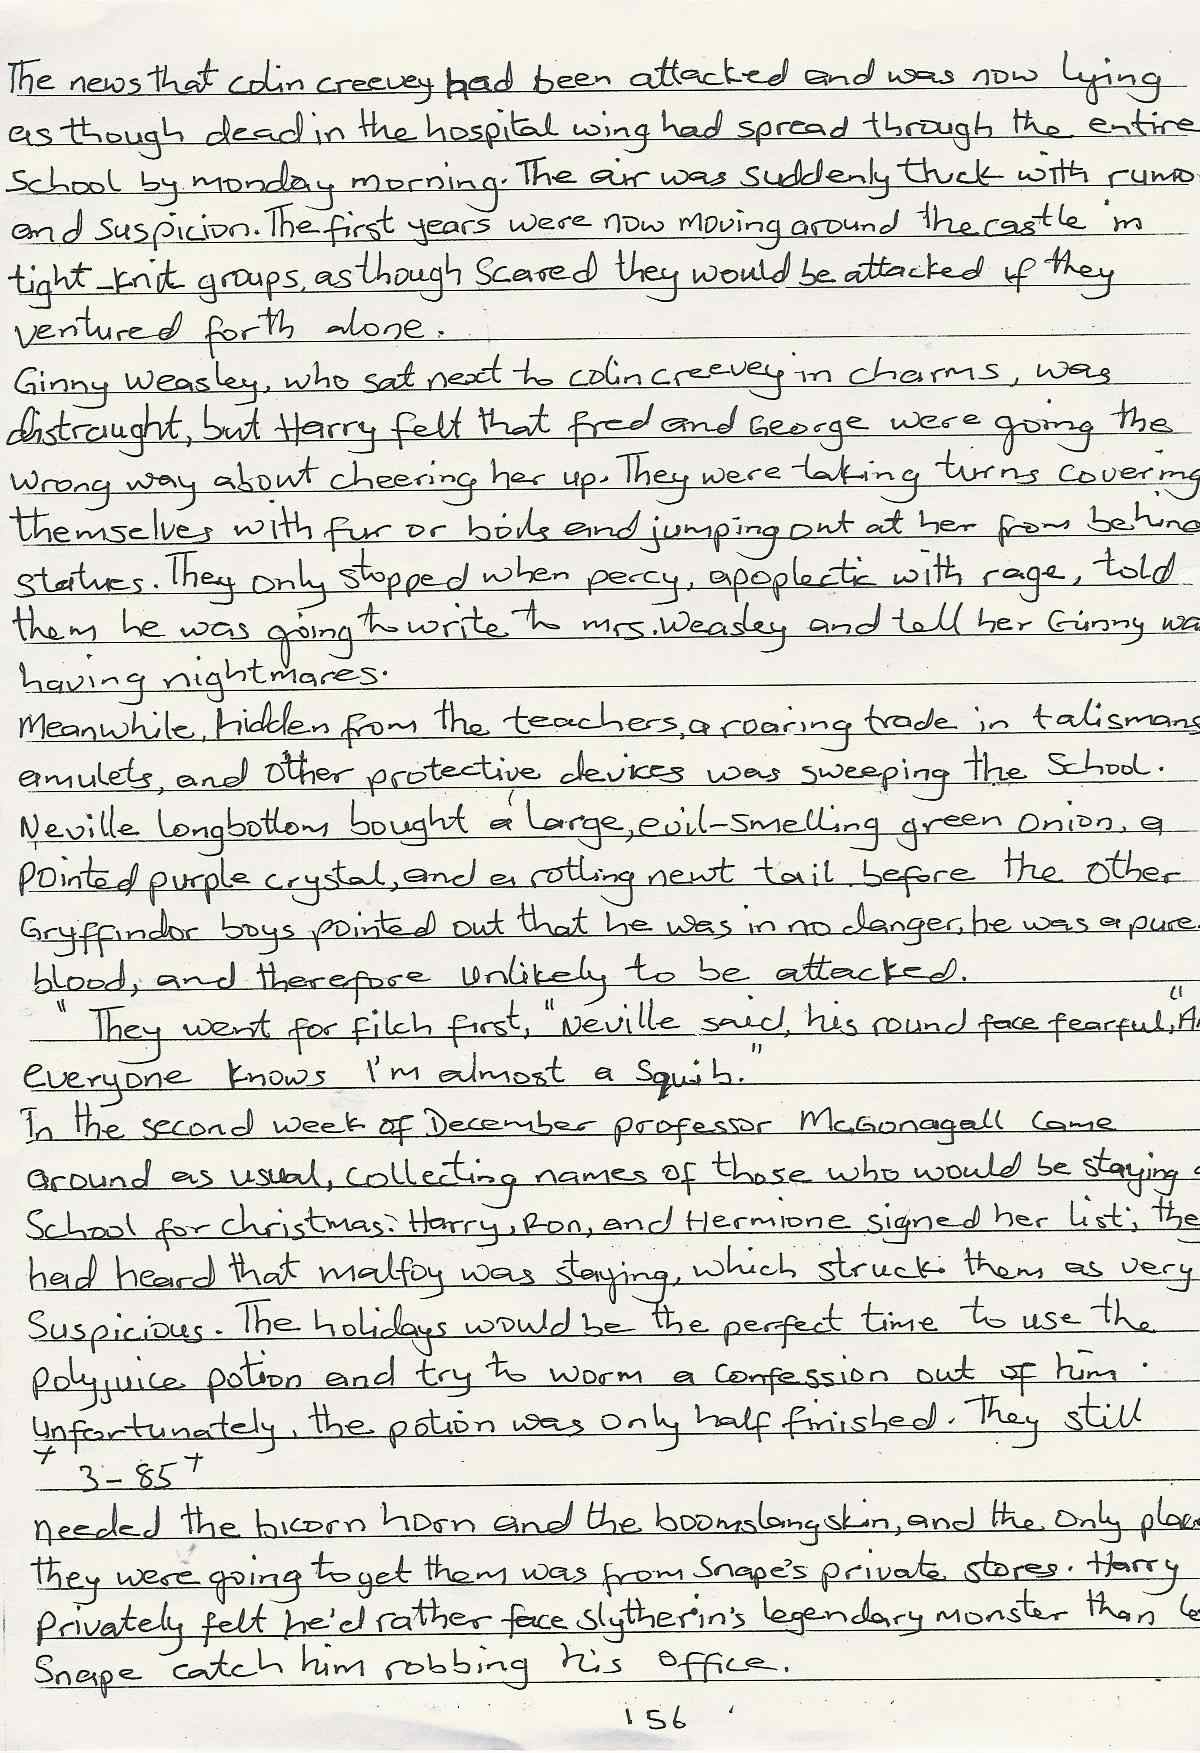 The news that colin creevey had been attacked and was now lying
as though dead in the hospital wing had spread through the entire
School by monday morning. The air was suddenly thick with rumo
and suspicion. The first years were now moving around the castle in
tight-knit groups, as though Scared they would be attacked if they
ventured forth alone.
Ginny Weasley, who sat next to colin creevey in charms, was
distraught, but Harry felt that fred and George were going the
wrong way about cheering her up. They were taking turns covering
themselves with fur or boils and jumping out at her from behind
statues. They only stopped when percy, apoplectic with rage, told
them he was going to write to mrs. Weasley and tell her Ginny wa
having nightmares.
Meanwhile, hidden from the teachers, a roaring trade in talismans
amulets, and other protective devices was sweeping the School.
Neville longbottom bought a large, evil-smelling green onion, a
pointed purple crystal, and a rotting newt tail before the other
Gryffindor boys pointed out that he was in no danger, he was a pure.
blood, and therefore unlikely to be attacked.
"They went for filch first," Neville said, his round face fearful, "A
everyone knows I'm almost a Squib."
In the second week of December professor McGonagall Came
around as usual, collecting names of those who would be staying
School for christmas. Harry, Ron, and Hermione signed her list; the
had heard that malfoy was staying, which struck them as very
Suspicious. The holidays would be the perfect time to use the
polyjuice potion and try to worm a confession out of him.
Unfortunately, the potion was only half finished. They still
+ 3-85+
needed the bicorn horn and the boomslang skin, and the only place
they were going to get them was from Snape's private stores. Harry
Privately felt he'd rather face slytherin's legendary monster than le
Snape catch him robbing his office.
156